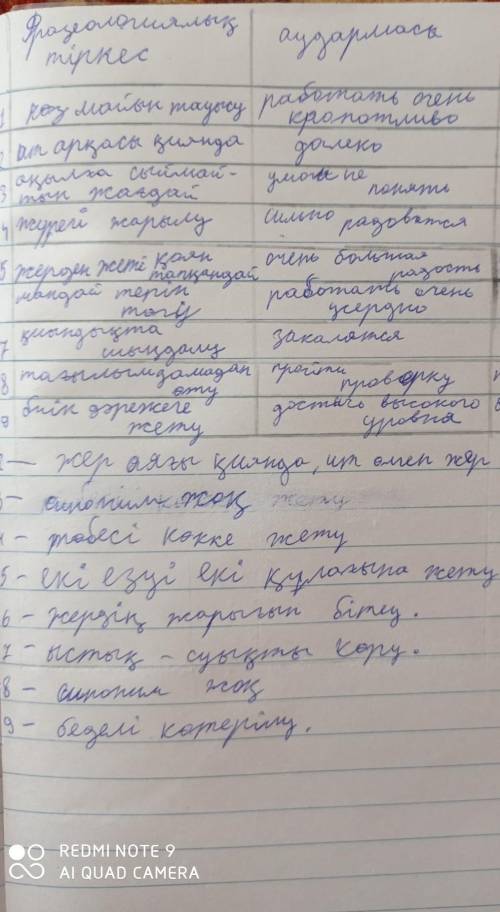 Фразеологиялық аудармасы
тіркес
1 көз майын тауысу работать очень
кропотливо
2 ит арқасы қиянда далеко
3 ақылға сыймай- умом не
тын жағдай понять
4 жүрегі жарылу сильно радоватся
5 жерден жеті қоян очень большая
тапқандай радость
маңдай терін работать очень
төгу усердно
7 қиындықта закалятся
шыңдалу
8 тағылымдамадан пройти
өту проверку
9 биік дәрежеге достичь высокого
жету уровня
2 - жер аяғы қиянда, ит өлген жер
3 - синоним жоқ
4 - төбесі көкке жету
5 - екі езуі екі құлағына жету
6 - жердің жарығын бітеу.
7 - ыстық - суықты көру.
8 - синоним жоқ
9 - беделі көтерілу.
REDMI NOTE 9
AI QUAD CAMERA